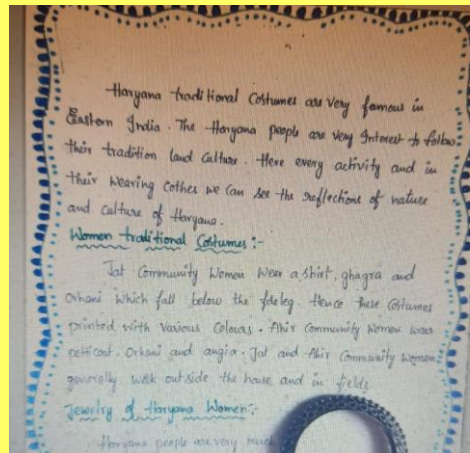 Haryana traditional Costumes are very famous in
Eastern India. The Haryana people are very Interest to follow
their tradition land Culture. Here every activity and in
their wearing cothes we can see the reflections of nature
and culture of Haryana.
Women traditional Costumes :-
Jat Community Women Wear a shirt, ghagra and
Orhani which fall below the foreleg. Hence these Costumes
printed with various Colours. Ahir Community Women wear
petticoat, Orhani and angia. Jat and Ahir Community Women
generally work outside the house and in fields
Jewelry of Haryana Women :-
Haryana people are very much